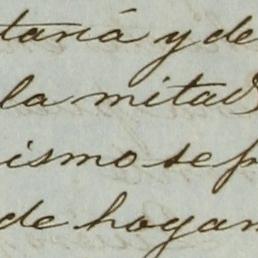 taria y de
la mitad
ismo se p
de hogar